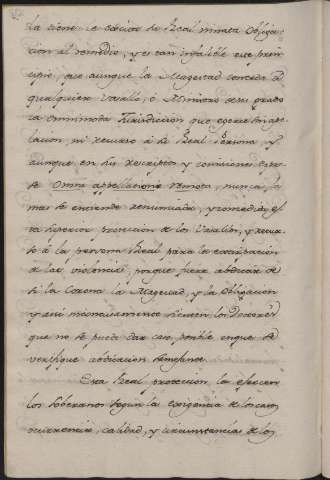 la tiene le
cion al remedio, y es tan infalible este prin
cipio, que aunque la Magestad conceda à
qualquiera Vasallo, ó Ministro de su grado
la omnimoda Jurisdicion que egerce sin ape
lacion, ni recurso à su Real Persona, y
aunque en sus rescriptos y comisiones
se Omni appellatione remota, nunca, ja
mas se entiende renunciada, y
ta superior proteccion de los Vasallos, y recur
so à la persona Real para la
de las violencias, porque fuera abdicar de
si la Corona la Magestad, y la Obligacion
y assi sienten los Doctores
que no se puede dar caso, posible en que se
verifique abdicacion semejante.
Esta Real proteccion, la egercen
los Soberanos segun la exigencia de los casos
ocurrencias, calidad, y circunstancias de los